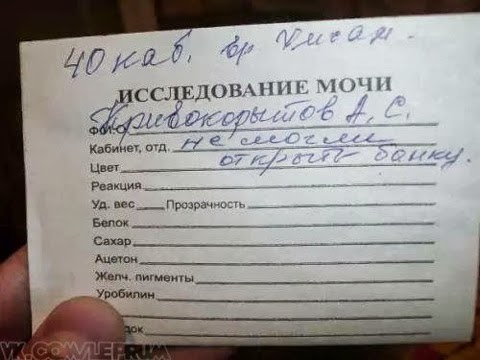 40 каб. вр
ИССЛЕДОВАНИЕ МОЧИ
Кривокорытов А. С.
Ф.И.О.
Кабинет, отд. не могли
Цвет открыть банку.
Реакция
Уд. вес Прозрачность
Белок
Сахар
Ацетон
Желч. пигменты
Уробилин
VK.COM/LEPRUM